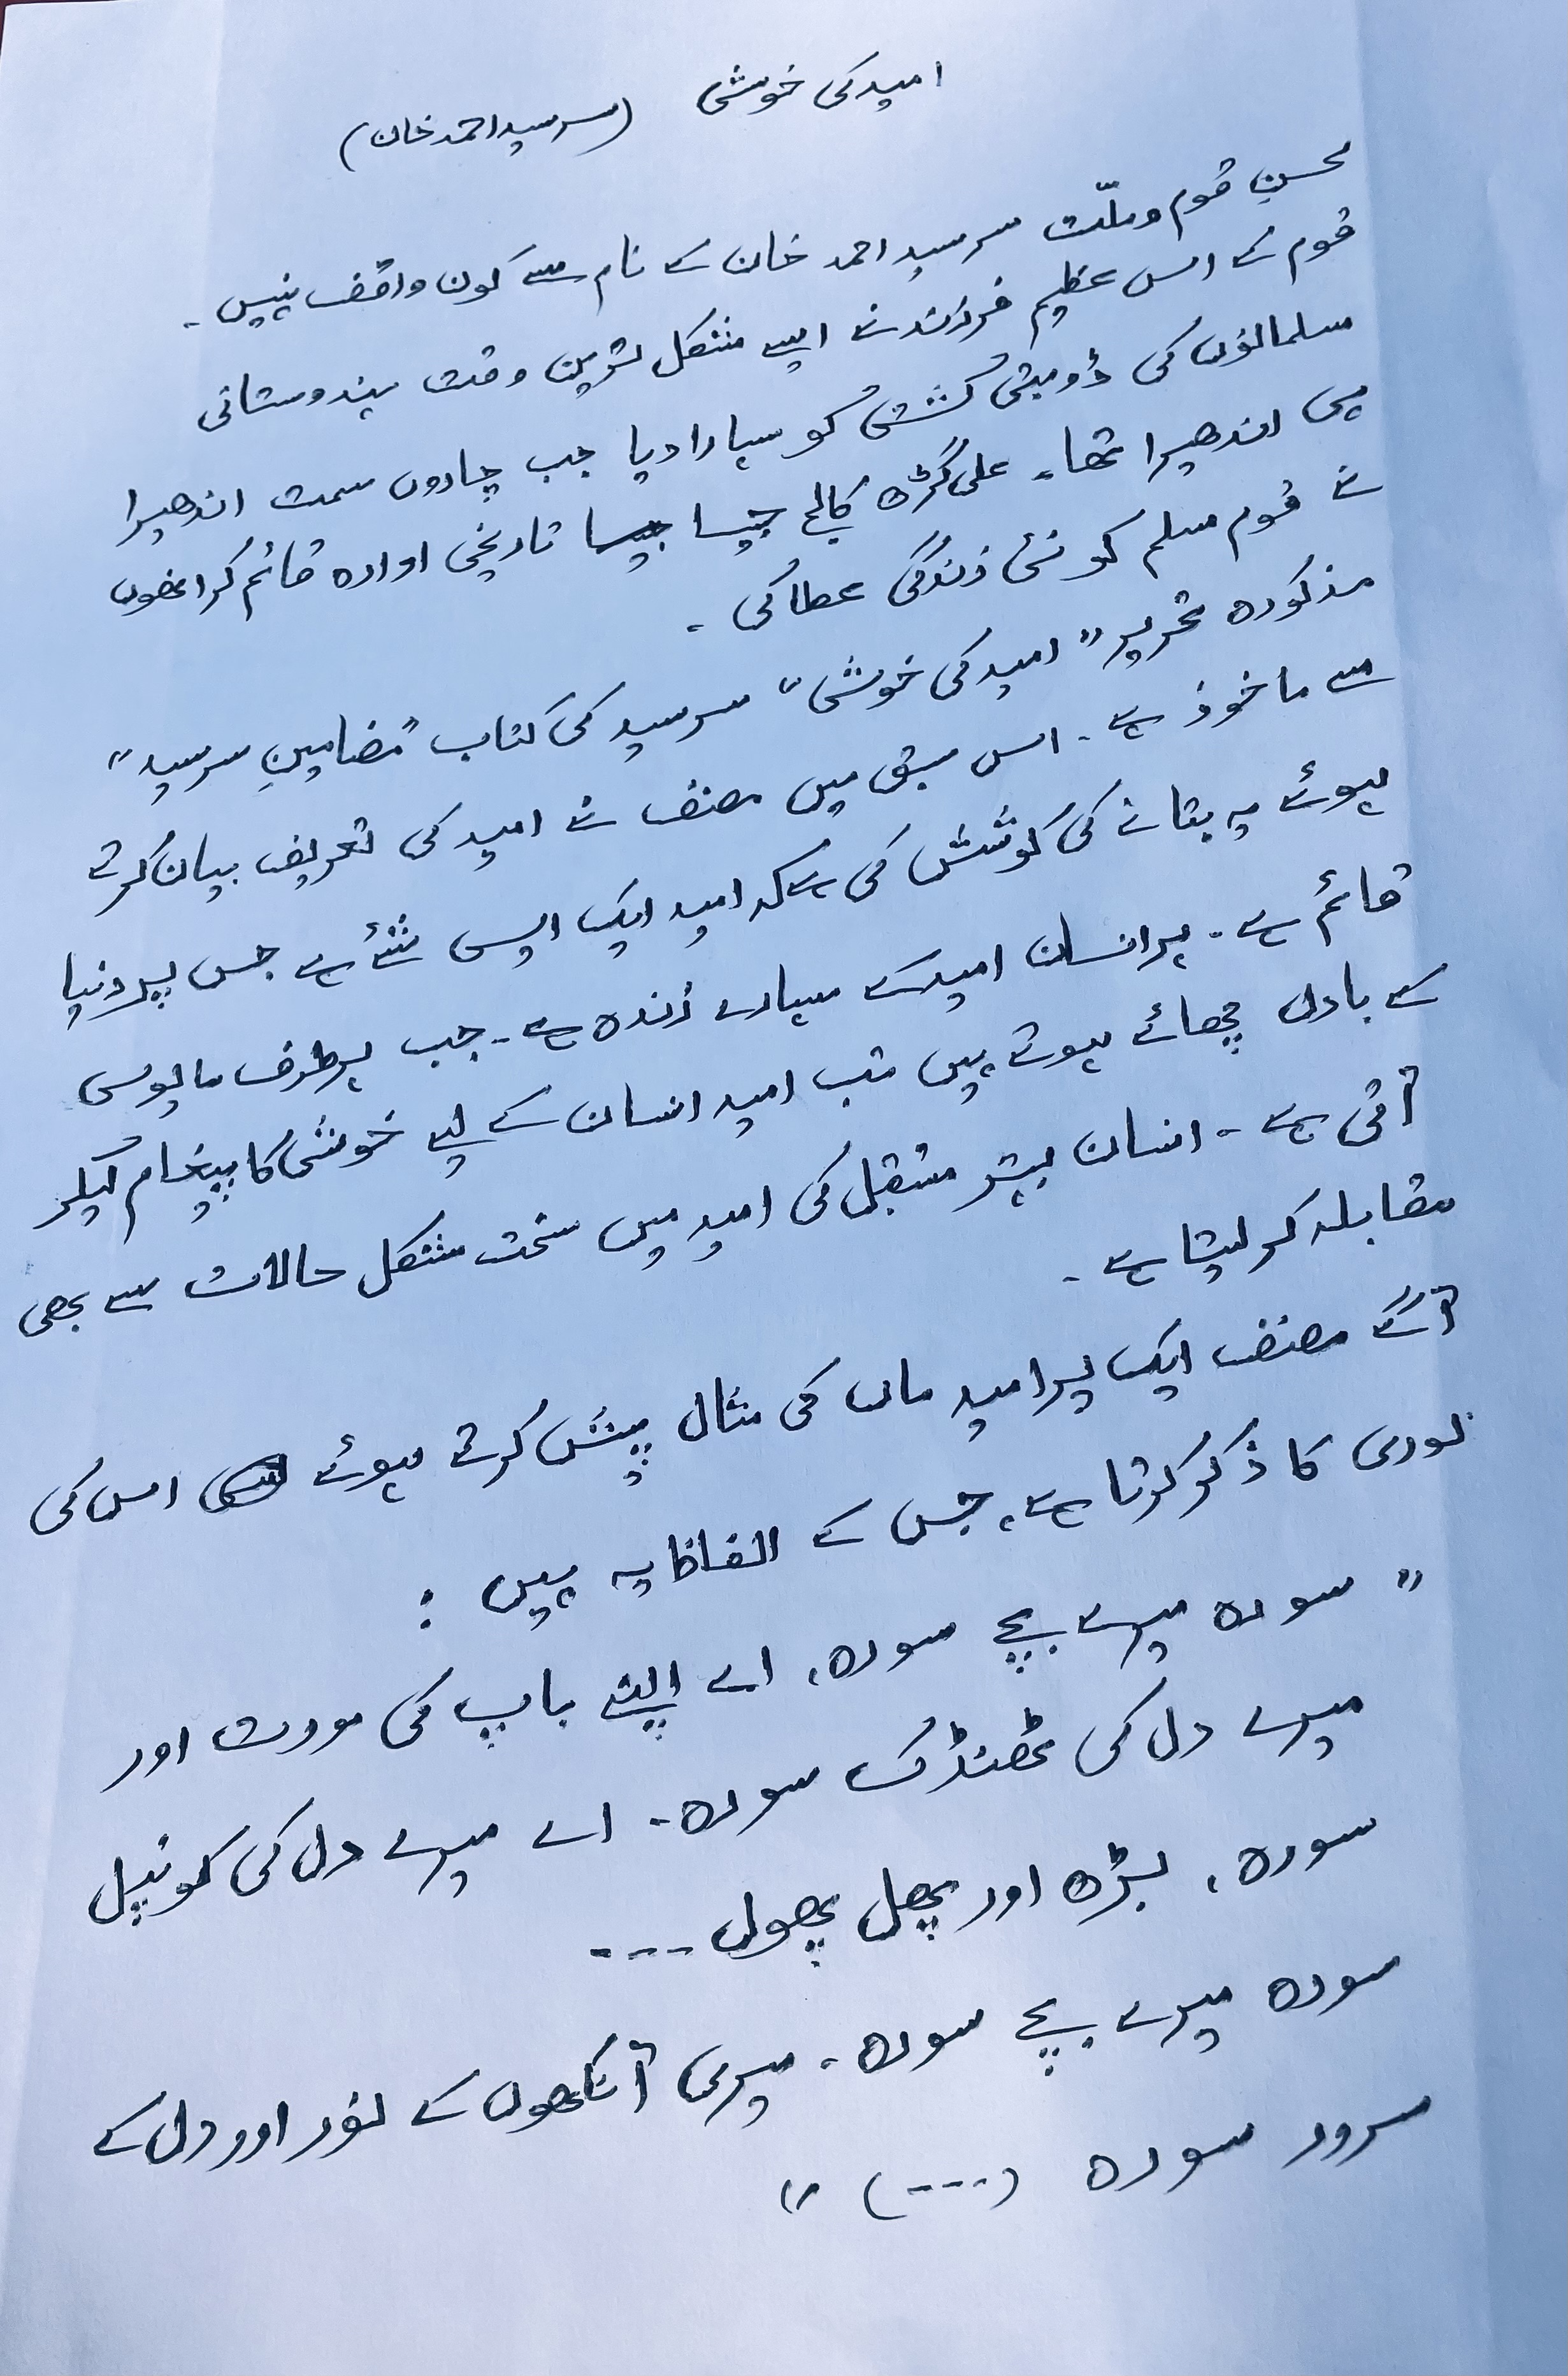 امید کی خوشی (سر سید احمد خان)
محسنِ قوم و ملّت سر سید احمد خان کے نام سے کون واقف نہیں ۔
قوم کے اس عظیم فرزند نے ایسے مشکل ترین وقت ہندوستانی
مسلمانوں کی ڈوبتی کشتی کو سہارا دیا جب چاروں سمت اندھیرا
ہی اندھیرا تھا۔ علی گڑھ کالج جیسا تاریخی ادارہ قائم کر انھوں
نے قوم مسلم کو نئی زندگی عطا کی ۔
مذکورہ تحریر "امید کی خوشی" سر سید کی کتاب "مضامینِ سر سید"
سے ماخوذ ہے ۔ اس سبق میں مصنف نے امید کی تعریف بیان کرتے
ہوئے یہ بتانے کی کوشش کی ہے کہ امید ایک ایسی شئے ہے جس پر دنیا
قائم ہے ۔ ہر انسان امید کے سہارے زندہ ہے ۔ جب ہر طرف مایوسی
کے بادل چھائے ہوتے ہیں تب امید انسان کے لیے خوشی کا پیغام لیکر
آتی ہے ۔ انسان بہتر مستقبل کی امید میں سخت مشکل حالات سے بھی
مقابلہ کر لیتا ہے ۔
آگے مصنف ایک پر امید ماں کی مثال پیش کرتے ہوئے اس کی
لوری کا ذکر کرتا ہے، جس کے الفاظ یہ ہیں :
" سو رہ میرے بچے سو رہ، اے اپنے باپ کی مورت اور
میرے دل کی ٹھنڈک سو رہ ۔ اے میرے دل کی کونپل
سو رہ، بڑھ اور پھل پھول ---
سو رہ میرے بچے سو رہ ۔ میری آنکھوں کے نور اور دل کے
سرور سو رہ (---) "